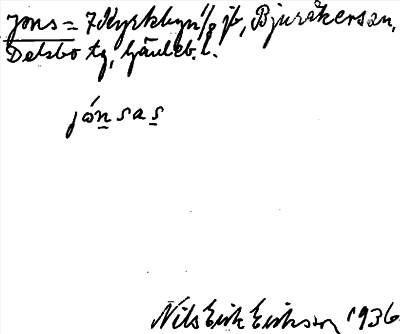 Jons = 7 Kyrkbyn 1/8 jb, Bjuråkers sn,
Delsbo tg, Gävleb. l.
jónsas
Nils Erik Eriksson 1936